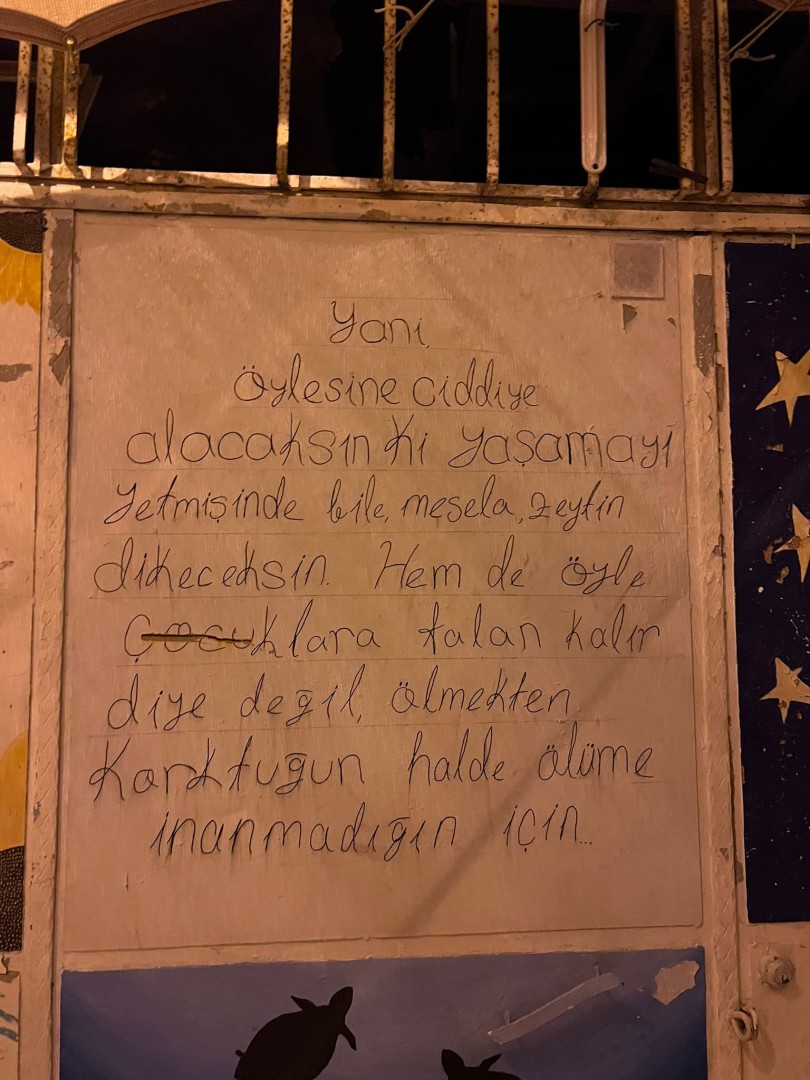 Yani,
öylesine ciddiye
alacaksın ki yaşamayı
Yetmişinde bile, mesela, zeytin
dikeceksin. Hem de öyle
Çocuklara falan kalır
diye değil, ölmekten
Korktuğun halde ölüme
inanmadığın için...